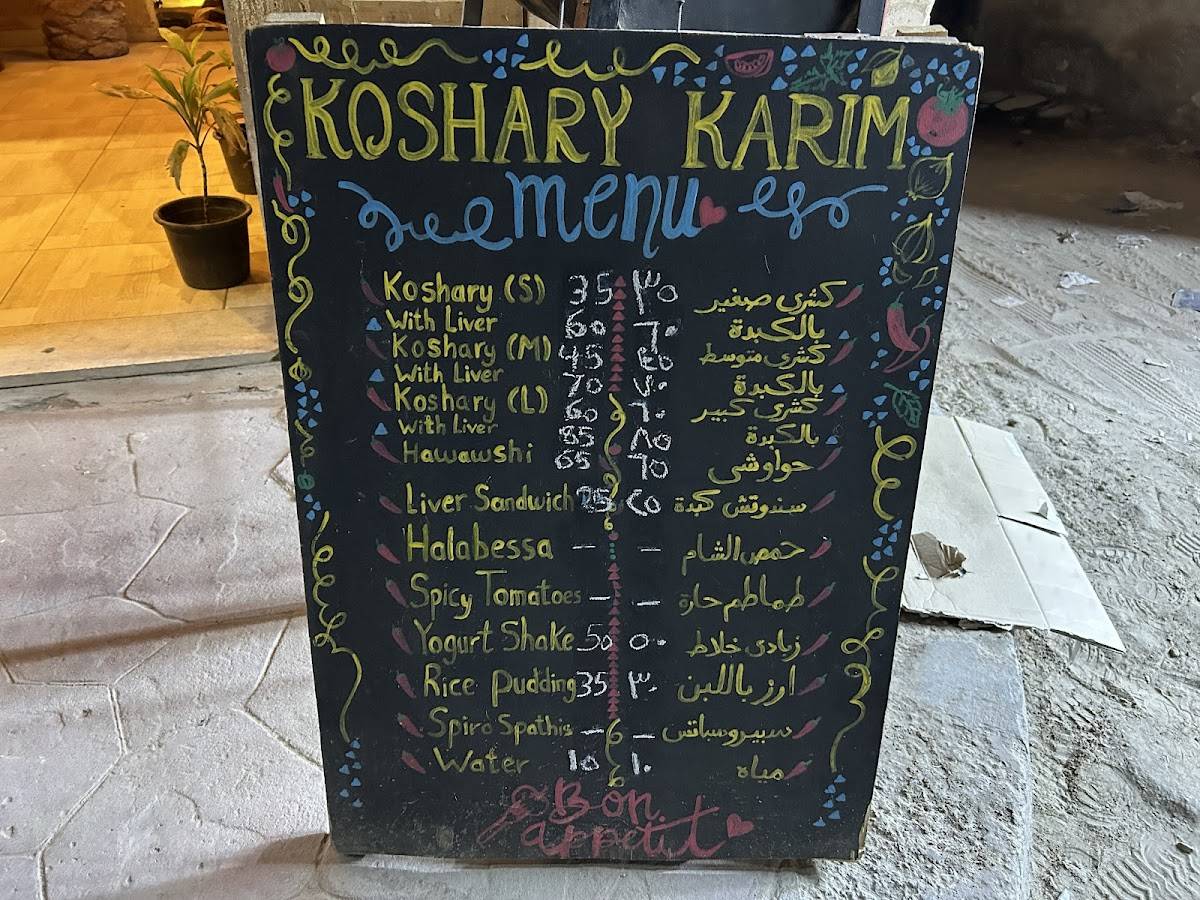 KOSHARY KARIM
menu
Koshary (S) 35 ٣٠ كشرى صغير
With Liver 60 ٦٠ بالكبدة
Koshary (M) 45 ٤٥ كشرى متوسط
With Liver 70 ٧٠ بالكبدة
Koshary (L) 60 ٦٠ كشرى كبير
With Liver 85 ٨٥ بالكبدة
Hawawshi 65 حواوشى
Liver Sandwich 25 ٢٥ سندوتش كبدة
Halabessa – – حمص الشام
Spicy Tomatoes – – طماطم حارة
Yogurt Shake 50 ٥٠ زبادى خلاط
Rice Pudding 35 ٣٠ ارز باللبن
Spiro Spathis – – سبيروسباتس
Water 10 ١٠ مياه
Bon
appetit